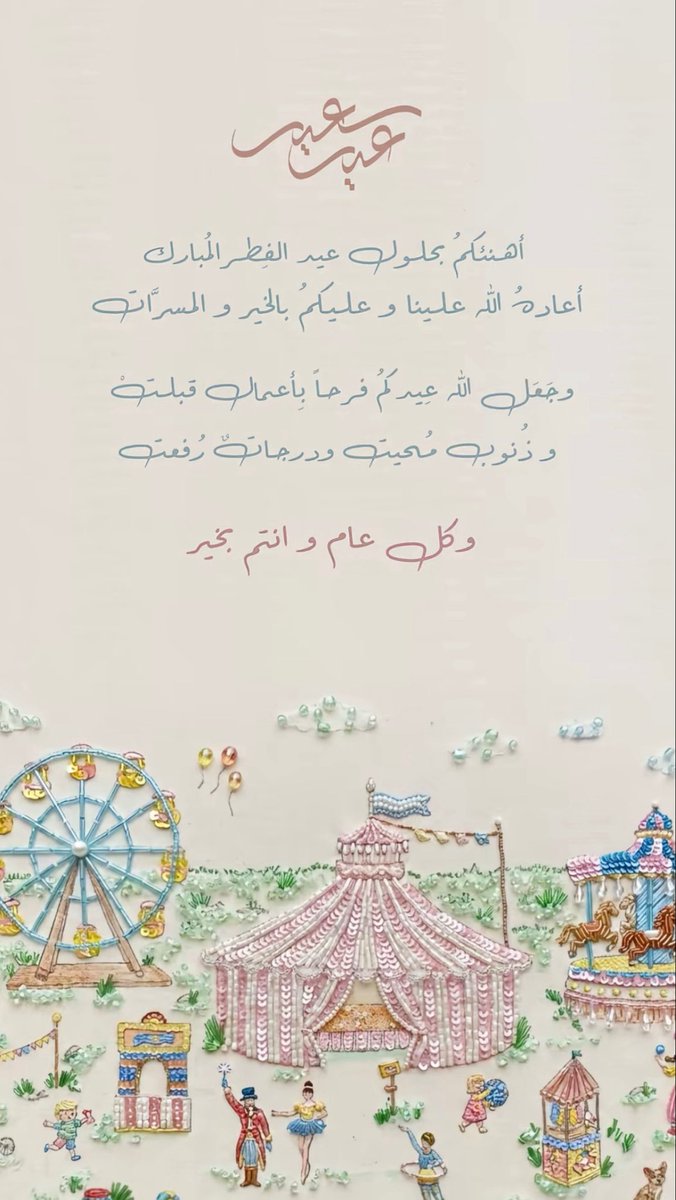 عيد سعيد
أهنئكمُ بحلول عيد الفِطر المُبارك
أعادهُ الله علينا و عليكمُ بالخير و المسرَّات
وجَعَل الله عِيدكمُ فرحاً بِأعمال قبلتْ
و ذُنوب مُحيت ودرجاتٌ رُفعت
وكل عام و انتم بخير